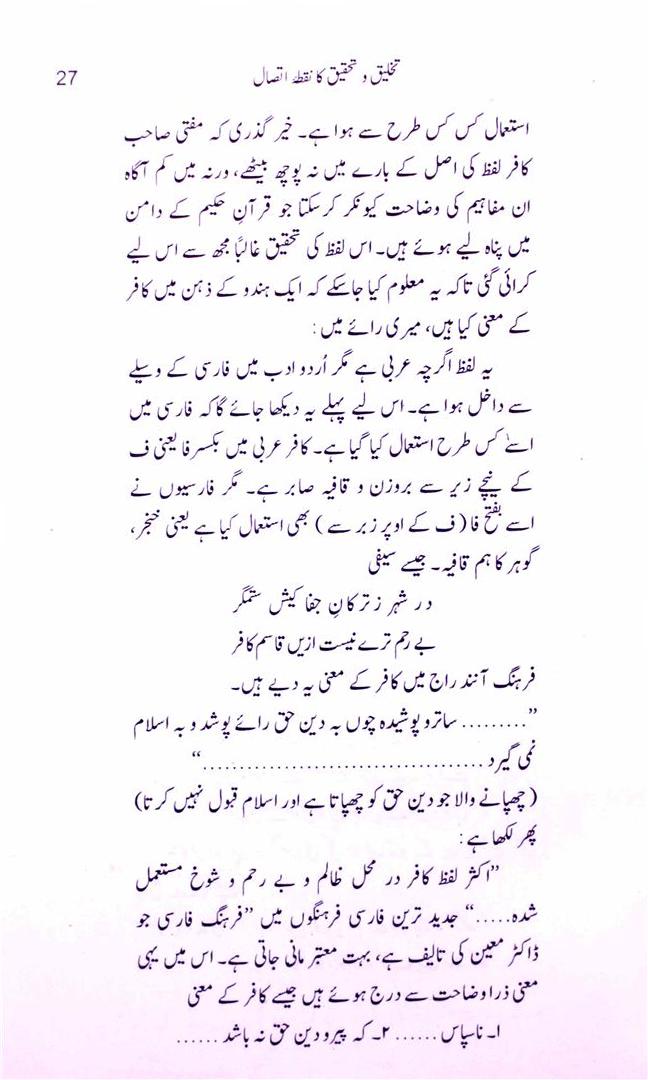 تخلیق و تحقیق کا نقطہ اتصال 27
استعمال کس کس طرح سے ہوا ہے۔ خیر گذری کہ مفتی صاحب
کافر لفظ کی اصل کے بارے میں نہ پوچھ بیٹھے، ورنہ میں کم آگاہ
ان مفاہیم کی وضاحت کیونکر کرسکتا جو قرآنِ حکیم کے دامن
میں پناہ لیے ہوئے ہیں۔ اس لفظ کی تحقیق غالباً مجھ سے اس لیے
کرائی گئی تاکہ یہ معلوم کیا جاسکے کہ ایک ہندو کے ذہن میں کافر
کے معنی کیا ہیں، میری رائے میں :
یہ لفظ اگرچہ عربی ہے مگر اُردو ادب میں فارسی کے وسیلے
سے داخل ہوا ہے۔ اس لیے پہلے یہ دیکھا جائے گا کہ فارسی میں
اسے کس طرح استعمال کیا گیا ہے۔ کافر عربی میں بکسر فا یعنی ف
کے نیچے زیر سے بروزن و قافیہ صابر ہے۔ مگر فارسیوں نے
اسے بفتح فا (ف کے اوپر زبر سے) بھی استعمال کیا ہے یعنی خنجر،
گوہر کا ہم قافیہ۔ جیسے سیفی
در شہر ز ترکانِ جفا کیش ستمگر
بے رحم ترے نیست ازیں قاسم کافر
فرہنگ آنند راج میں کافر کے معنی یہ دیے ہیں۔
”......... ساتر و پوشیدہ چوں بہ دین حق رائے پوشد و بہ اسلام
نمی گیرد ....................................“
(چھپانے والا جو دین حق کو چھپاتا ہے اور اسلام قبول نہیں کرتا)
پھر لکھا ہے :
”اکثر لفظ کافر در محل ظالم و بے رحم و شوخ مستعمل
شدہ.....“ جدید ترین فارسی فرہنگوں میں ”فرہنگ فارسی جو
ڈاکٹر معین کی تالیف ہے، بہت معتبر مانی جاتی ہے۔ اس میں یہی
معنی ذرا وضاحت سے درج ہوئے ہیں جیسے کافر کے معنی
۱۔ ناسپاس ...... ۲۔ کہ پیرو دین حق نہ باشد ......